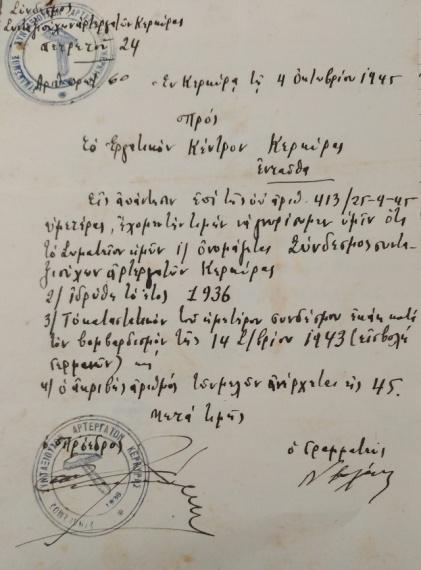 Σύνδεσμος
Συνταξιούχων αρτεργατών Κερκύρας
24
Αριθ. πρωτ. 60 Εν Κερκύρα τη 4 Οκτωβρίου 1945
Πρός
Το Εργατικόν Κέντρον Κερκύρας
Ενταύθα
Εις απάντησιν επί της υπ' αριθ. 413/25-9-45
υμετέρας, έχομεν την τιμήν να γνωρίσωμεν υμίν ότι
το Σωματείον ημών 1/ ονομάζεται Σύνδεσμος συντα-
ξιούχων αρτεργατών Κερκύρας
2/ ιδρύθη το έτος 1936
3/ Το καταστατικόν του ημετέρου συνδέσμου εκάη κατά
τον βομβαρδισμόν της 14 7/βρίου 1943 (εισβολή
γερμανών)
4/ ο ακριβής αριθμός των μελών ανέρχεται εις 45.
Μετά τιμής
ο Πρόεδρος ο Γραμματεύς
ΣΥΝΤΑΞΙΟΥΧΩΝ ΑΡΤΕΡΓΑΤΩΝ ΚΕΡΚΥΡΑΣ
1936